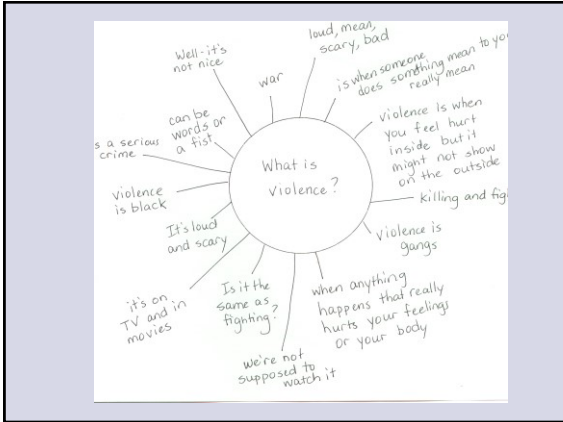 What is
Violence?
loud, mean,
scary, bad
is when someone
does something mean to you
really mean
violence is when
you feel hurt
inside but it
might not show
on the outside
killing and
violence is
gangs
when anything
happens that really
hurts your feelings
or your body
we're not
supposed to
watch it
Is it the
same as
fighting?
it's on
TV and in
movies
It's loud
and scary
violence
is black
s a serious
crime
can be
words or
a fist
Well-it's
not nice
war